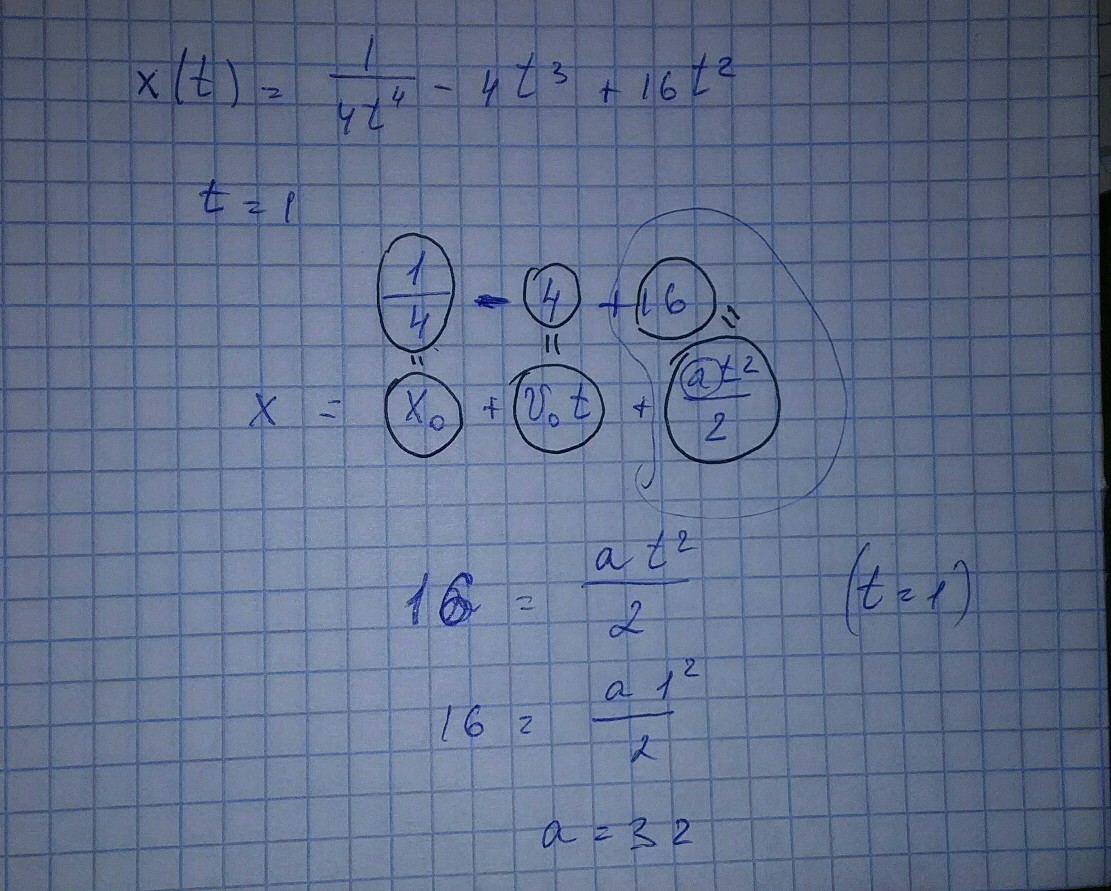 x(t) = 1/4t⁴ - 4t³ + 16t²
t = 1
1/4 - 4 + 16
= = =
x = x₀ + v₀t + at²/2
16 = at²/2 (t = 1)
16 = a 1²/2
a = 32